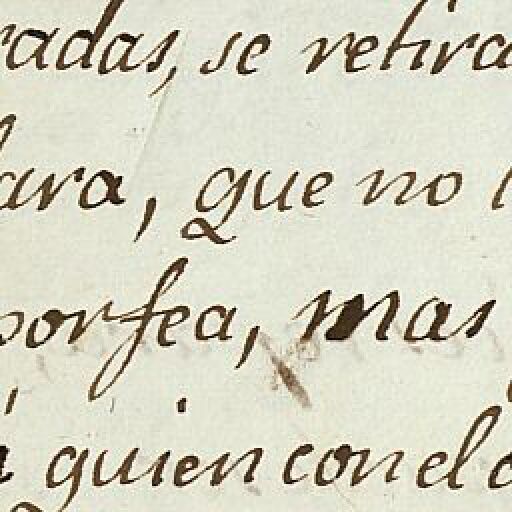 radas, se retira
lara, que no l
por fea, mas
á quien con el